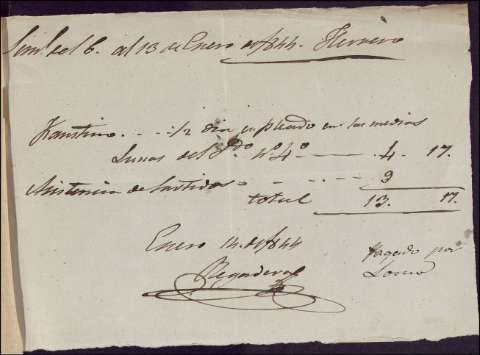 Sem.l del 6. al 13 de Enero de 1844. Herrero
Faustino. - - - 1/2 dia empleado en las medias
Lunas del P.do nº 4º - 4 - 17.
Asistencia de - - - 9
total 13. 17.
Enero 14. de 1844
Pagado por